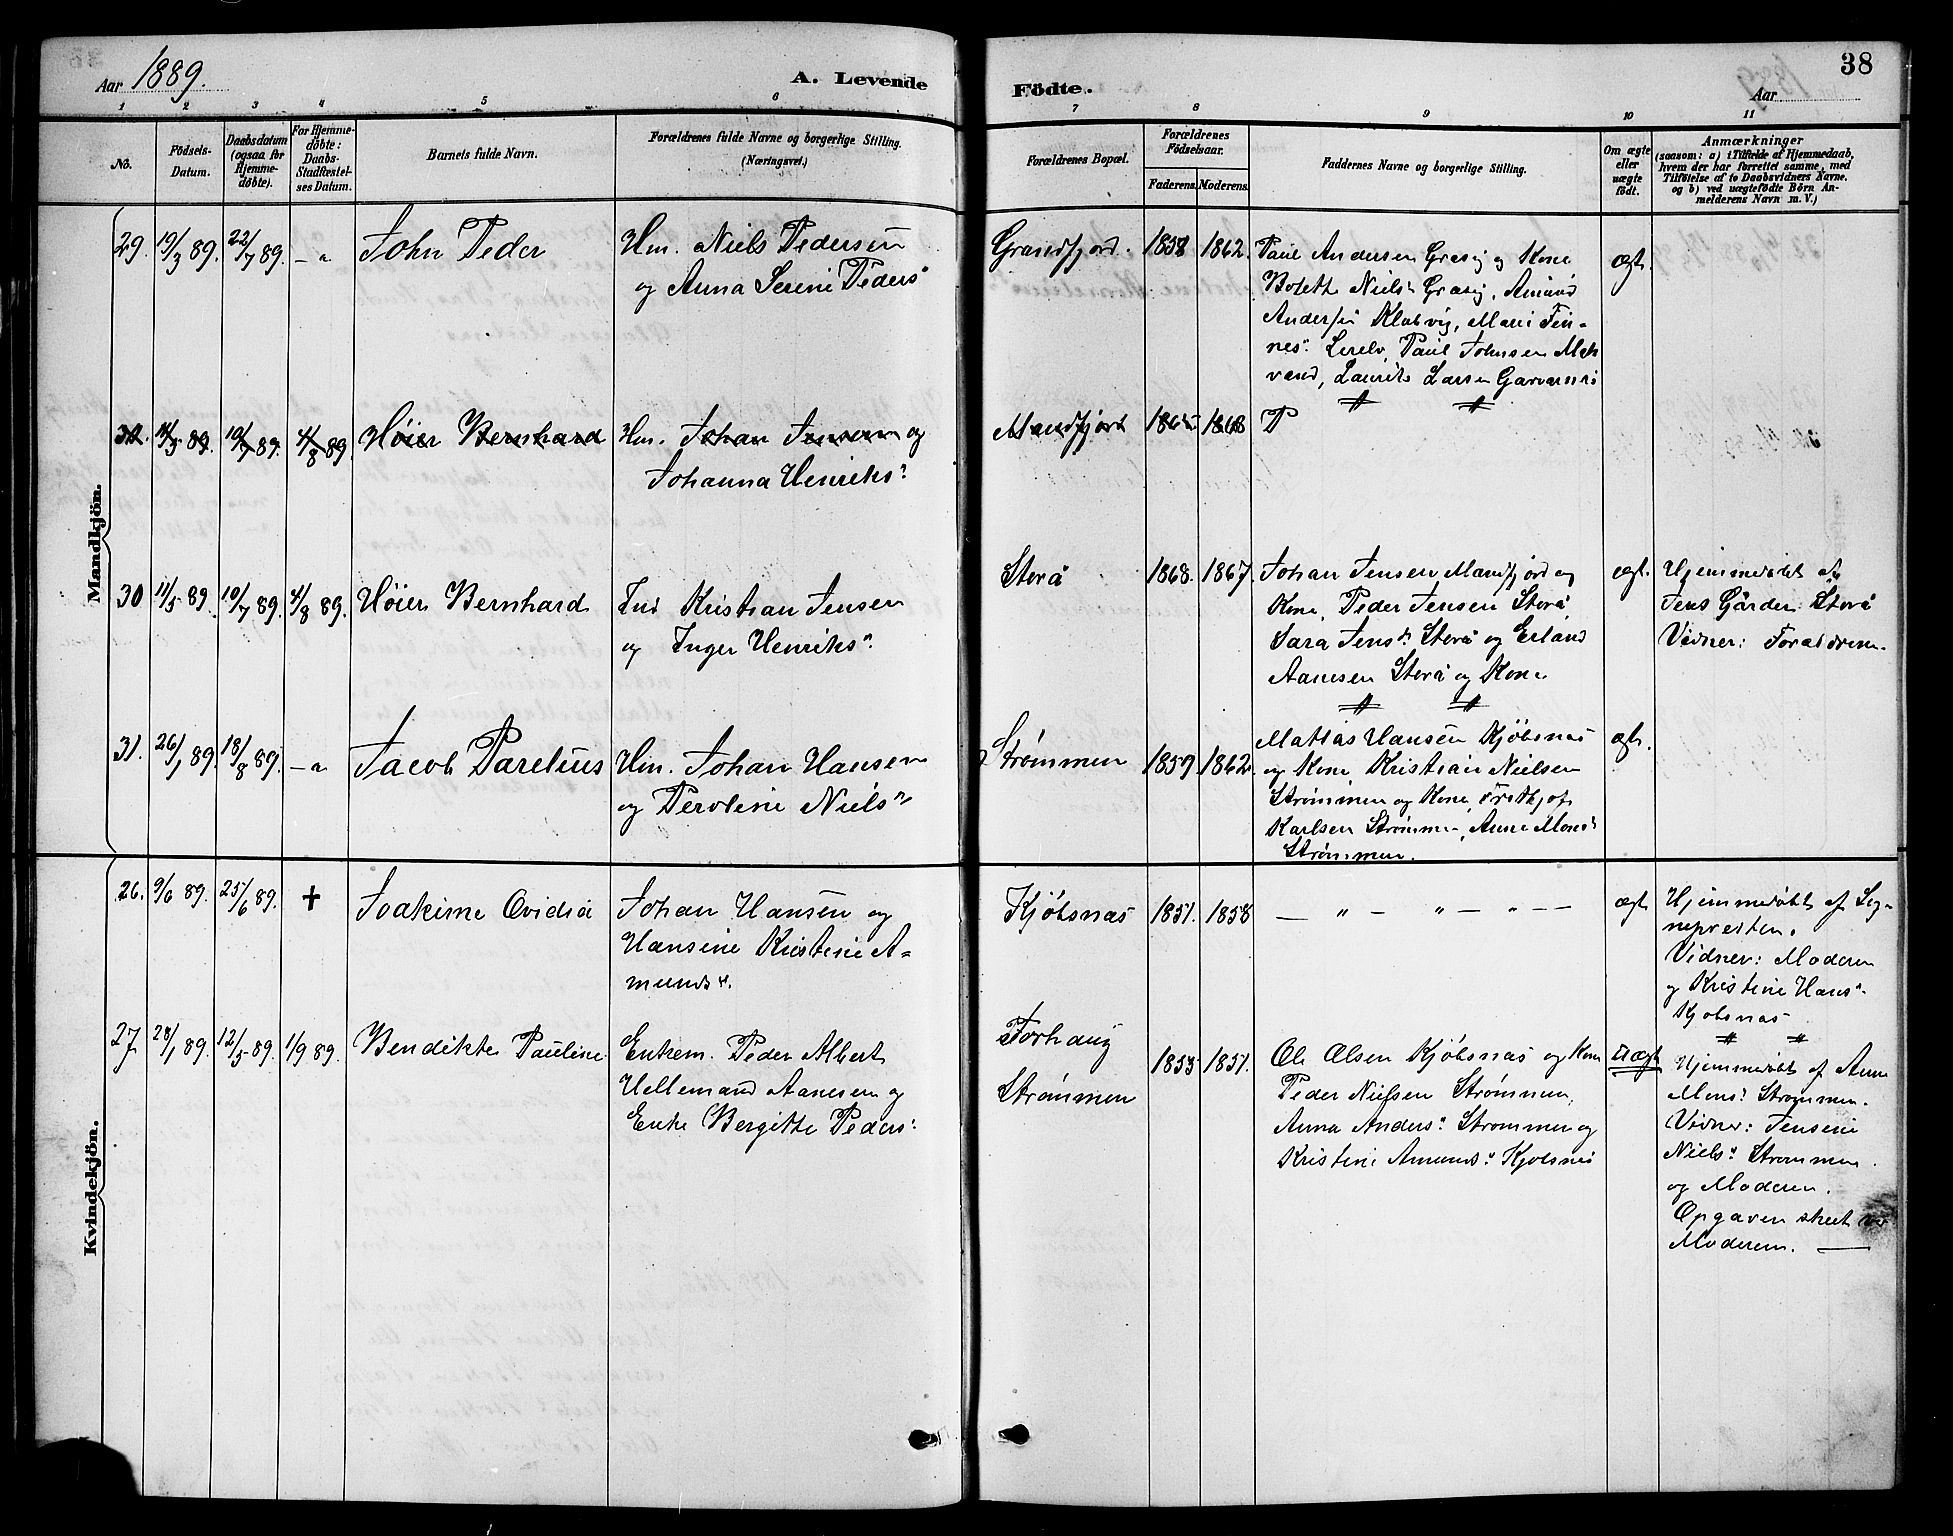 Aar 1889.
A. Levende Födte.
38
Aar
1 2 3 4 5 6 7 8 9 10 11
No.
Födsels-Datum.
Daabsdatum (ogsaa for Hjemme-døbte).
For Hjemme-døbte: Daabs-Stadfæstel-ses Datum.
Barnets fulde Navn.
Forældrenes fulde Navne og borgerlige Stilling. (Næringsvei.)
Forældrenes Bopæl.
Forældrenes Födselsaar.
Faderens. Moderens.
Faddernes Navne og borgerlige Stilling.
Om ægte eller uægte født.
Anmærkninger
(saasom: a) i Tilfælde af Hjemmedaab,
hvem der har forrettet samme, med
Tilföielse af to Daabsvidners Navne.
og b) ved uægtefödte Börn An-
melderens Navn m. V.)
Mandkjön.
29. 19/3 89. 22/7 89. – " John Peder
Hm. Niels Pedersen
og Anna Serine Peders"
Grundfjord. 1858 1862.
Paul Andersen Græsij og Kone
Bolette Niels" Græsij, Amund
Andersen Klubvig, Marie Fin-
nes" Lerelv, Paul Johnsen Mek
vand, Laurits Larsen Garvarnæs
ægt.
30. 11/5 89. 10/7 89. 4/8 89. Høier Bernhard
Hm. Johan Jensen og
Johanna Henriks"
Mandfjord 1865 1868 P
30 11/5 89. 10/7 89. 4/8 89. Høier Bernhard
Ind Kristian Jensen
og Inger Henriks"
Storå 1868. 1867.
Johan Jensen Mandfjord og
Kone, Peder Jensen Storå
Sara Jens" Storå og Erland
Aanesen Storå og Kone
ægt.
Hjemmedøbt af
Jens Gårder Storå
Vidner: Forældrene.
31. 26/1 89. 18/8 89. – " Jacob Parelius
Hm. Johan Hansen
og Peroline Niels"
Strømmen 1859 1862.
Mattias Hansen Kjøbsnæs
og Kone, Kristian Nielsen
Strømmen og Kone, Fridtjof
Karlsen Strømmen, Anne Mons"
Strømmen.
ægt.
Kvindekjön.
26. 9/6 89. 25/6 89. + Joakime Ovidia
Johan Hansen og
Hansine Kristine A-
munds".
Kjøbsnæs 1851. 1858
— " — " — " — —
ægt
Hjemmedøbt af Sog-
nepresten.
Vidner: Moderen
og Kristine Hans"
Kjøbsnæs
27. 28/1 89. 12/5 89. 1/9 89. Bendikte Pauline
Enkem. Peder Albert
Hellemand Aanesen og
Enke Bergitte Peders"
Forhaug
Strømmen
1853 1851.
Ole Olsen Kjøbsnæs og Kone
Peder Nielsen Strømmen,
Anna Anders" Strømmen og
Kristine Amunds" Kjøbsnæs
Uægt
Hjemmedøbt af Anne
Mons" Strømmen.
Vidner: Jensine
Niels" Strømmen
og Moderen.
Opgaven skeet ved
Moderen. —